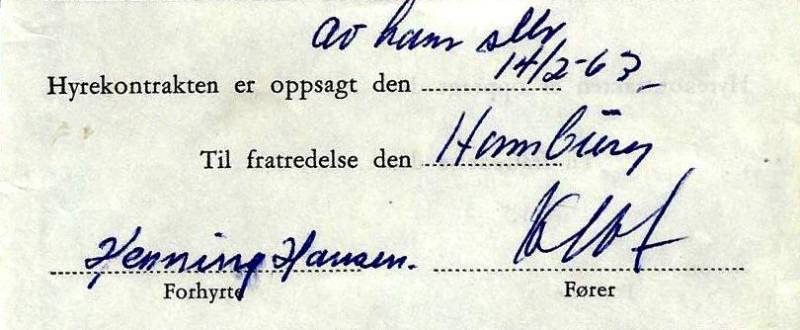 av ham selv
Hyrekontrakten er oppsagt den 14/2-63
Til fratredelse den Hamburg
Henning Hansen.
Forhyrte Fører